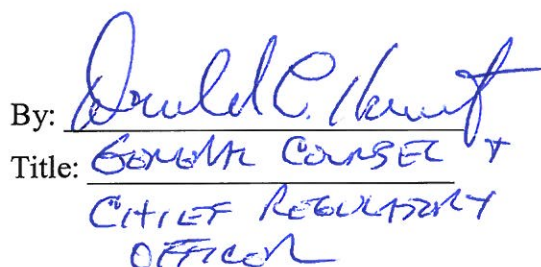 By: Donald C. Hunt
Title: GENERAL COUNSEL +
CHIEF REGULATORY
OFFICER